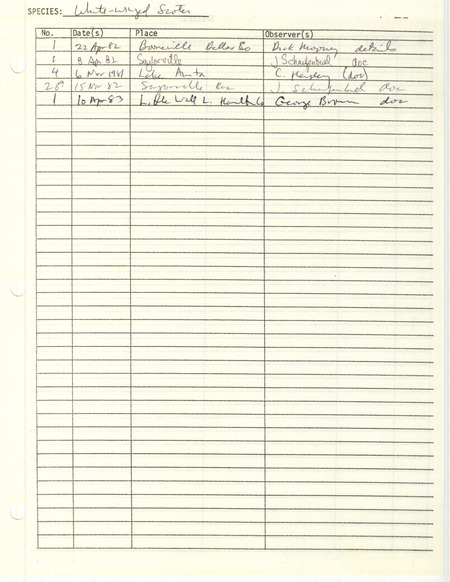 SPECIES: White-winged Scoter
No. Date(s) Place Observer(s)
1 22 Apr 82 Booneville Dallas Co Dick Mooney details
1 8 Apr 82 Saylorville J Schaufenbuel doc
4 6 Nov 1981 Lake Anita (doc)
28 15 Nov 82 Saylorville Res J. Schaufenbuel doc
1 10 Apr 83 L. Wall L. Hamilt Co George Brown doc